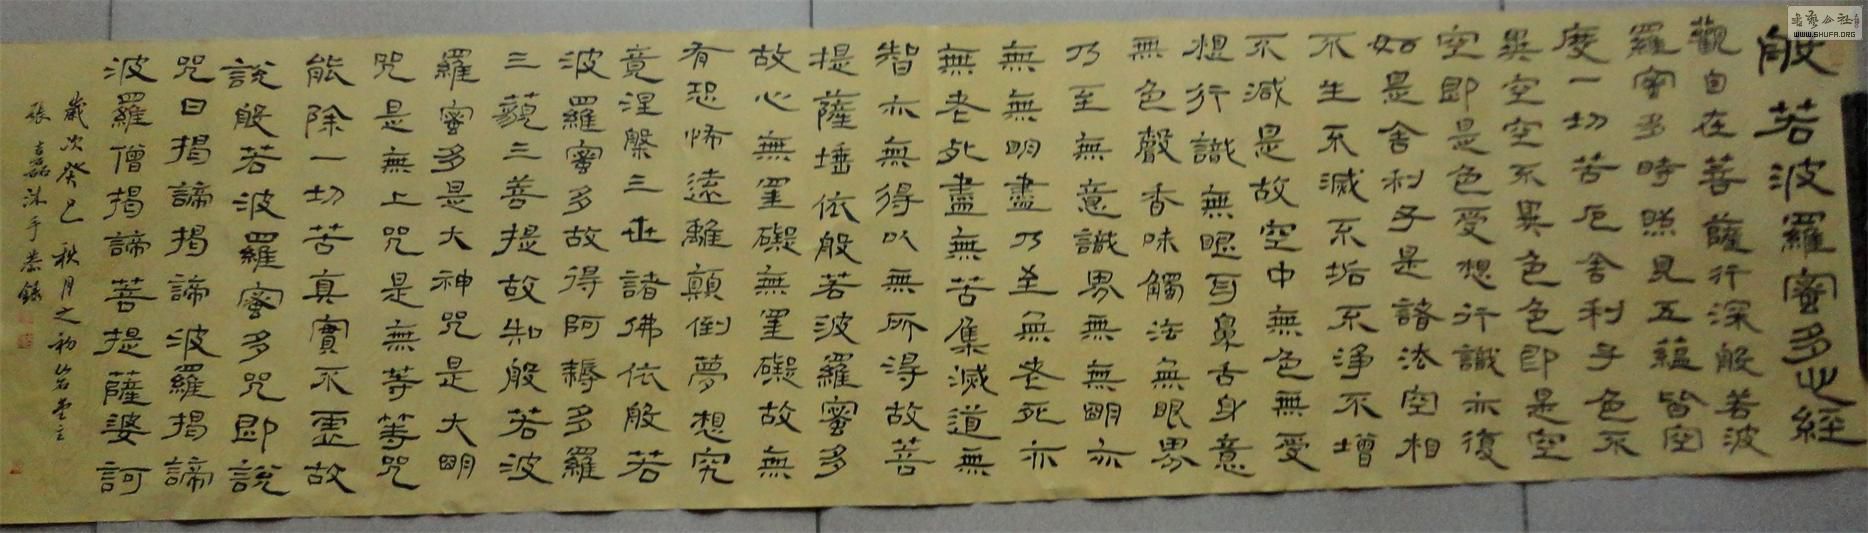 書艺公社
WWW.SHUFA.ORG
般若波羅蜜多心経
觀自在菩薩行深般若波
羅蜜多時照見五蘊皆空
度一切苦厄舍利子色不
異空空不異色色即是空
空即是色受想行識亦復
如是舍利子是諸法空相
不生不滅不垢不淨不增
不減是故空中無色無受
想行識無眼耳鼻舌身意
無色聲香味觸法無眼界
乃至無意識界無無明亦
無無明盡乃至無老死亦
無老死盡無苦集滅道無
智亦無得以無所得故菩
提薩埵依般若波羅蜜多
故心無罣礙無罣礙故無
有恐怖遠離顛倒夢想究
竟涅槃三世諸佛依般若
波羅蜜多故得阿耨多羅
三藐三菩提故知般若波
羅蜜多是大神咒是大明
咒是無上咒是無等等咒
能除一切苦真實不虛故
說般若波羅蜜多咒即說
咒曰揭諦揭諦波羅揭諦
波羅僧揭諦菩提薩婆訶
歲次癸巳秋月之初岩堂主
張磊沐手恭錄